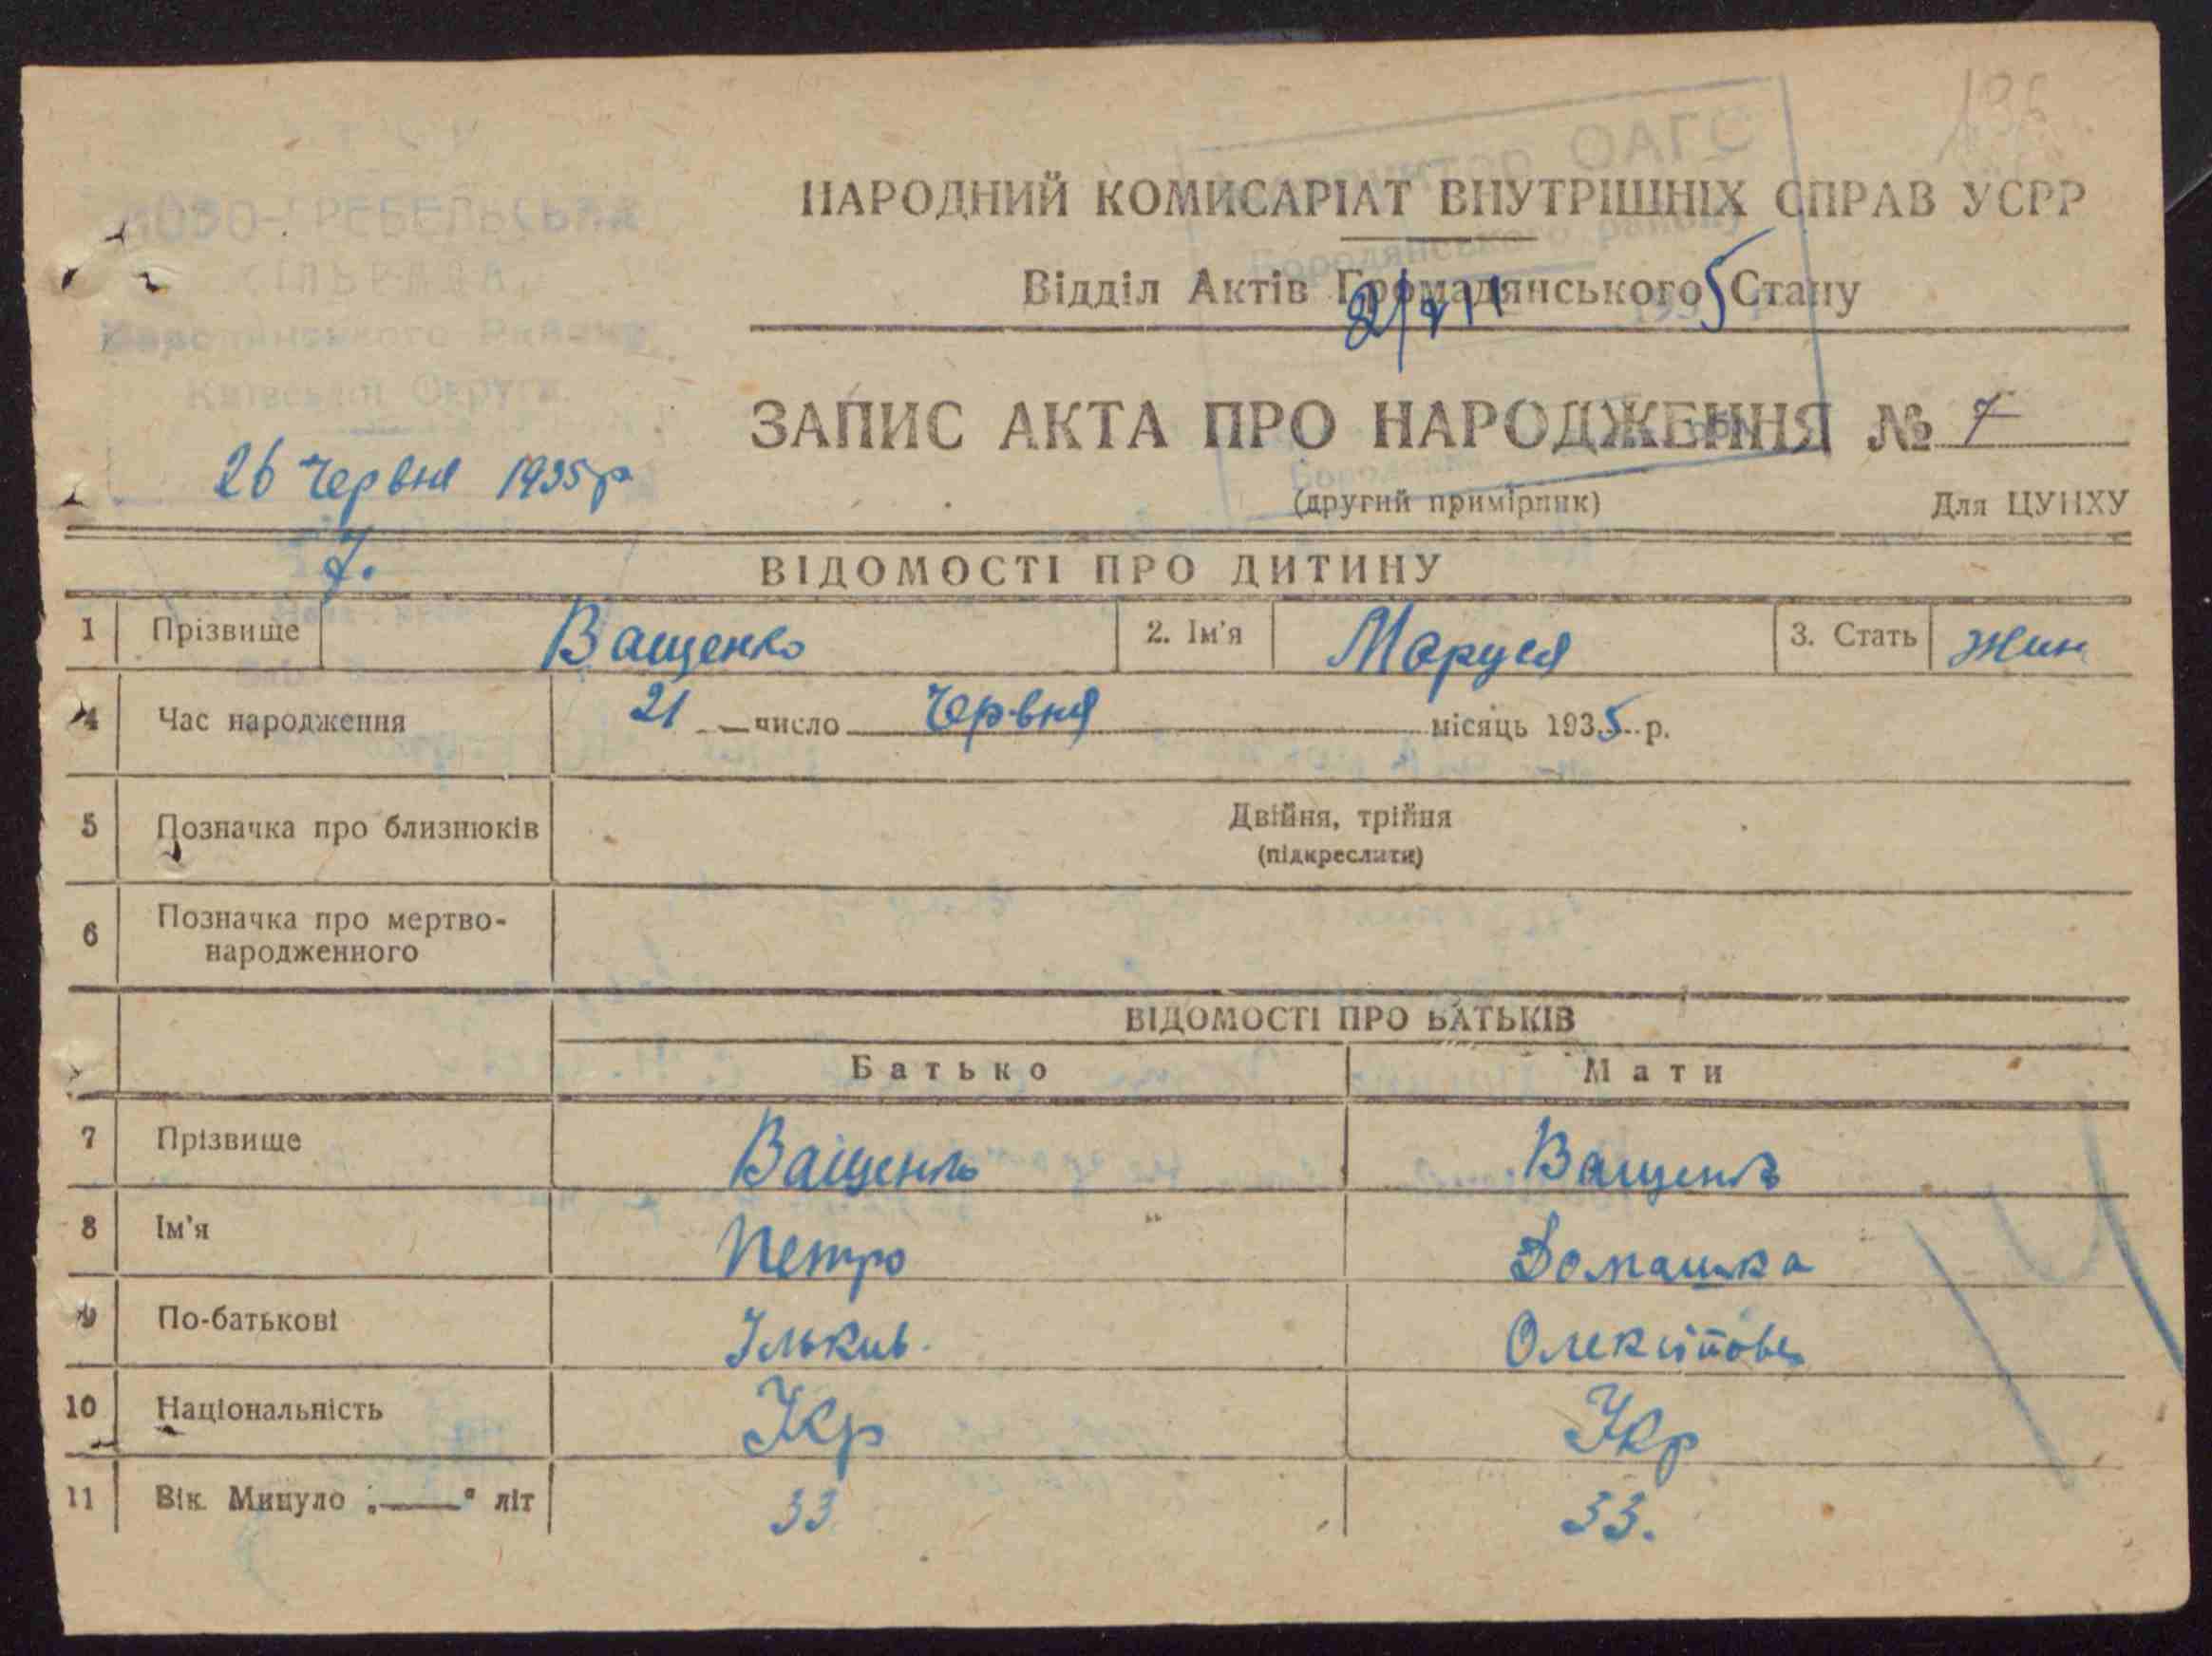 НАРОДНИЙ КОМИСАРІАТ ВНУТРІШНІХ СПРАВ УСРР
Відділ Актів Громадянського Стану
ОАГС
Бородянського району
ГРЕБЕЛЬСЬКА
СІЛЬРАДА
Району
Київської Округи
ЗАПИС АКТА ПРО НАРОДЖЕННЯ № 7
26 Червня 1935 р
(другий примірник) Для ЦУНХУ
7.
ВІДОМОСТІ ПРО ДИТИНУ
1 Прізвище Ващенко 2. Ім'я Маруся 3. Стать жин
4 Час народження 21 число Червня місяць 1935 р.
5 Позначка про близнюків Двійня, трійня
(підкреслити)
6 Позначка про мертво-
народженного
ВІДОМОСТІ ПРО БАТЬКІВ
Батько Мати
7 Прізвище Ващенко Ващенко
8 Ім'я Петро Домашка
9 По-батькові Ільків.
10 Національність Укр Укр
11 Вік. Минуло „——" літ 33 33.